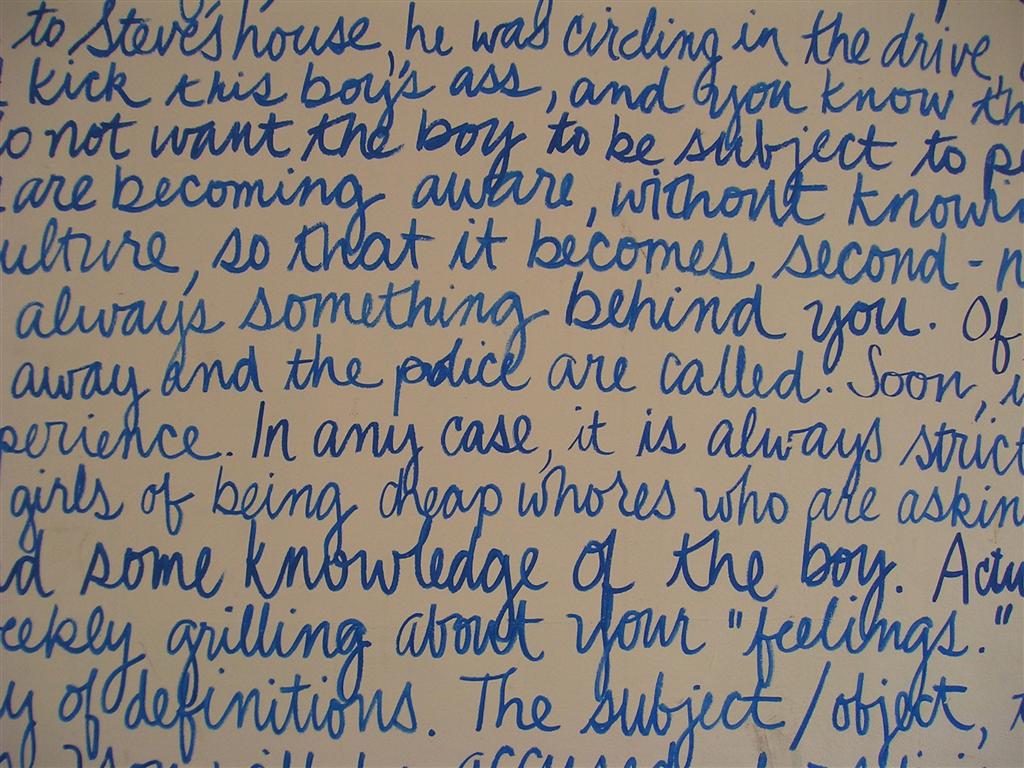 to Steve's house, he was circling in the drive,
kick this boy's ass, and you know th
o not want the boy to be subject to pe
are becoming aware, without knowin
ulture, so that it becomes second-n
always something behind you. Of
away and the police are called. Soon, i
perience. In any case, it is always strict
girls of being cheap whores who are askin
d some knowledge of the boy. Actu
eekly grilling about your "feelings."
y of definitions. The subject/object, t
accused